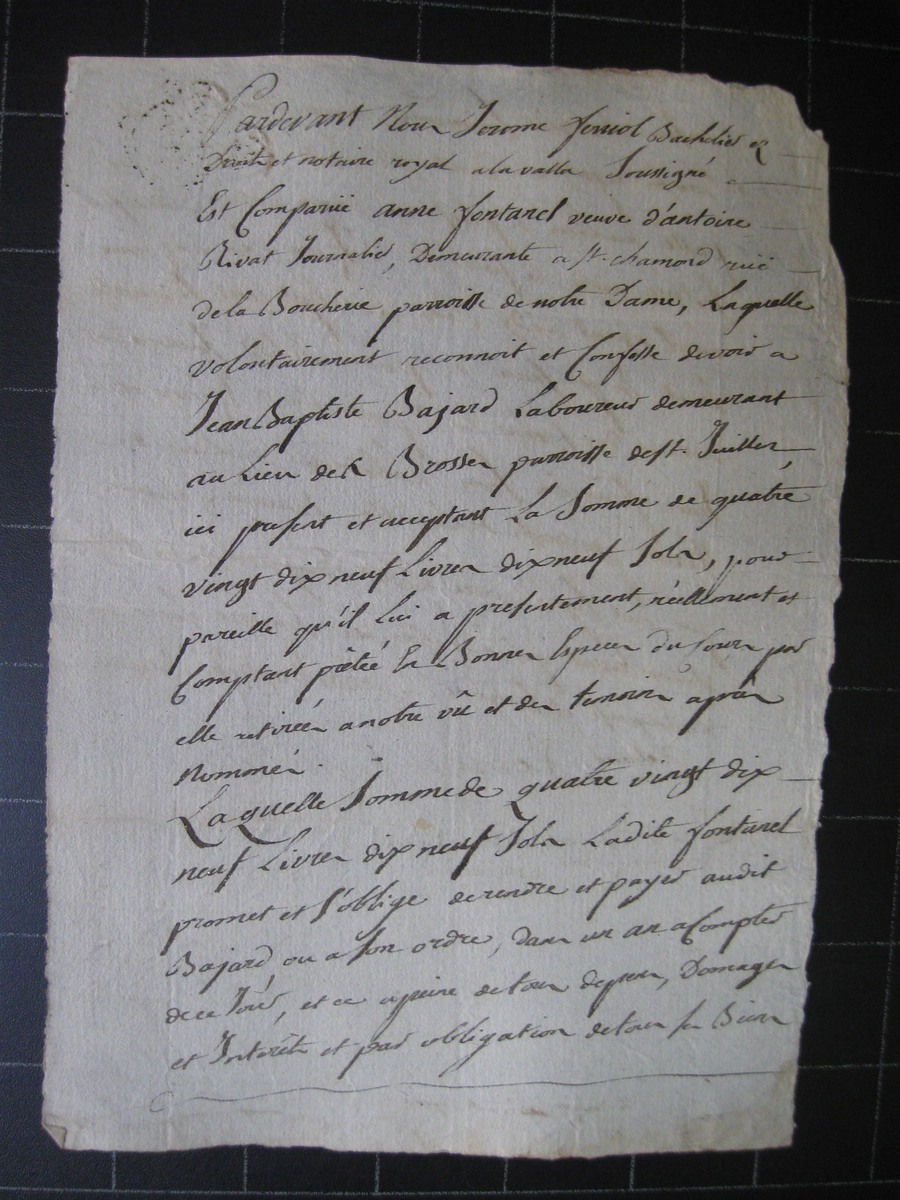 Pardevant Nous Jerome ferriol Bachelier es
Droits et notaire royal a lavalla Soussigné
Est Comparüe anne fontanel veuve d'antoine
Rivat Journalier, Demeurante a St. chamond rüe
de la Boucherie parroisse de notre Dame, Laquelle
volontairement reconnoit et Confesse devoir a
Jean Baptiste Bajard Laboureur demeurant
au Lieu des Brosses parroisse de St. Juillien
ici present et acceptant La Somme de quatre
vingt dix neuf Livres dix neuf Sols, pour
pareille qu'il Lui a presentement, réellement et
Comptant prêtée En Bonnes Especes du Cours par
elle retirées a notre vû et des temoins après
Nommés.
Laquelle Somme de quatre vingt dix
neuf Livres dix neuf Sols Ladite fontanel
promet et S'oblige de rendre et payer audit
Bajard, ou a son ordre, dans un an a Compter
de ce Jour, et ce a peine de tous depens, Domages
et Interêts et par obligation de tous ses Biens